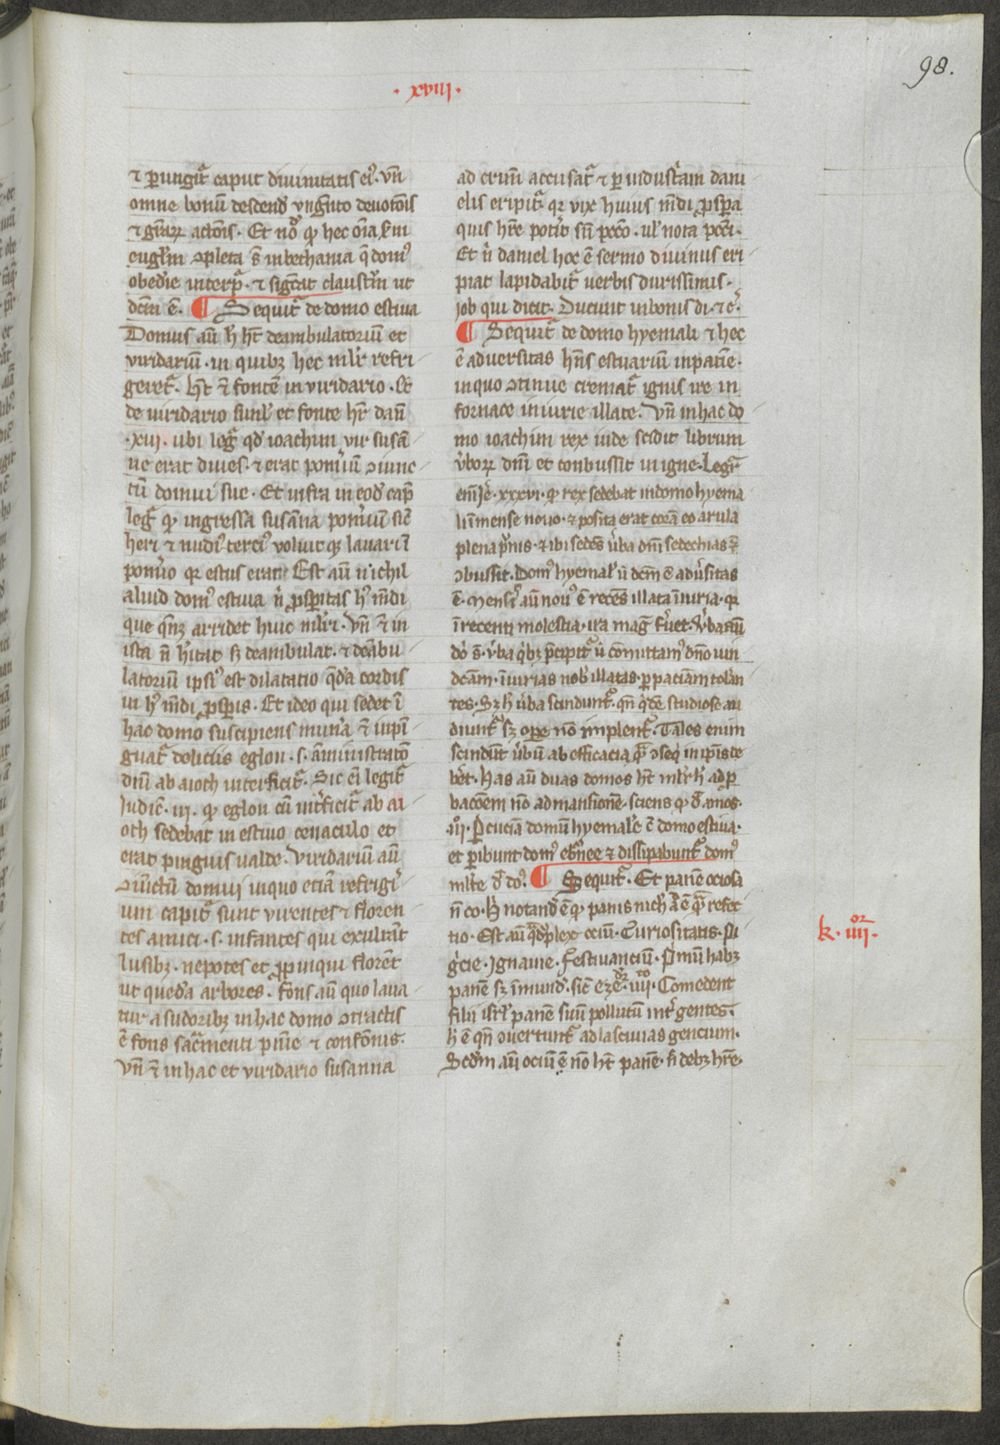 98.
· xviii ·
⁊ pungit᷑ caput diuinitatis ei᷒. vn̄
omne bonū descendᷤ vnguēto deuotōis
⁊ grā᷑ꝝ actōis. Et nō ꝙ hec oīa
ꝯpleta s̄t in bethania q̄ domꝰ
obedīe int᷑p᷑. ⁊ sigcat claustrū ut
dcm̄ ē. ¶ Sequit᷑ de domo estiua
Domus aū h̄ ht̄ deambulatoriū et
viridariū. in quibꝫ hec mlr̄ refri
geret᷑. ht̄ ⁊̄ fontē in viridario. Et
de viridario simlꝰ et fonte hr̄ dan̄
.xiii. ubi legr̄ qd̓ ioachim vir susā
ne erat diues. ⁊ erat pomiū ꝯiunc
tū domui sue. Et infra in eod̄ capꝰ
legr̄ ꝙ ingressa susāna pomiū sic̄
heri ⁊ nudiꝰ terciꝰ voluit qꝫ lauari
pomo qꝛ estus erat. Est aū nichil
aliud domꝰ estiua n̄ ꝓspitas hꝰ mdi
que qn̄qꝫ arridet huic mlr̄i. Vn̄ ⁊̄ in
ista n̄ hitat sꝫ deambulat. ⁊ deābu
latoriū ipsiꝰ est dilatatio qdā cordis
in hꝰ mdi ꝓspis. Et ideo qui sedet ī
hac domo suscipiens mun̄a ⁊̄ inpī
guat᷑ deliciis eglon .s. aministratō
dm̄ ab aioth interficit᷑. Sic ei legit᷑
Iudic̄. iii. ꝙ eglon cū int᷑ficit᷑ ab ai
oth sedebat in estiuo cenaculo et
erat pinguis ualde. Viridariū aū
ꝯiūctū domui in quo etiā refrigīꝰ
um capit᷑ sunt virentes ⁊ floren
tes amici .s. infantes qui exultāt
lusibꝫ. nepotes et ꝓpinqui florēt
ut quedā arbores. fons aū quo laua
tur a sudoribꝫ in hac domo ꝯtractis
ē fons sac᷑menti pnīe ⁊ confōnis.
vn̄ ⁊̄ in hac et viridario susanna
ad crim̄ accusat᷑ ⁊ p industriam dani
elis eripit᷑ qꝛ vix huius mdi ꝓspa
quis hr̄e potit sn̄ pccō. ul̓ nota pcc̄i.
Et n̄ daniel hoc ē sermo diuinus eri
piat lapidabit᷑ verbis durissimis.
job qui dicit. Ducunt in bonis di. ⁊ c̄.
¶ Sequit᷑ de domo hyemali ⁊ hec
ē aduersitas hn̄s estuariū inpatīe.
in quo ꝯtinue cremat᷑ ignis ire in
fornace iniurie illate. Vn̄ in hac do
mo ioachim rex iude scidit librum
ꝟboꝝ dn̄i et conbussit in igne. Legr̄
em̄ Ie᷑. xxxvi. ꝙ rex sedebat in domo hyema
li ī mense nouo. ⁊ posita erat corā eo arula
plena pnis. ⁊ ibi sedēs ꝟba dn̄i sedechias
ꝯbussit. Domꝰ hyemal̓ ut̄ dcm̄ ē adꝟsitas
ē. Mensiꝰ aū nouꝰ ē recēs illata iniuria. qꝛ
ī recenti molestia. ira mag̓ feruet. Vba aū
dei s̄t. ꝟba qͥbꝫ precipit᷑ ut ꝯmittamꝰ dn̄o uin
dcam. iniurias nobͥ illatas p paciam̄ tolān
tes. Sꝫ h̄ ꝟba scindunt᷑. qn̄ qͥdē studiose au
diunt᷑ sꝫ oꝑe nō implent᷑. Tales enim
scindūt ꝟbū ab efficacia q̄ ꝯseq̄ in ipīs de
bet. Has aū duas domos ht̄ mlr̄ h̄ ad p
bacōem nō ad mansionē. sciens ꝙ d̄r. amos.
.iii. Pcuciā domū hyemalē cū domo estiua.
et peribunt domꝰ eburnee ⁊ dissipabunt᷑ domꝰ
mlte dr̄ dꝰ. ¶ Sequit᷑. Et panē ociosa
n̄ co. h̄ notandᷤ ē ꝙ panis nich̄ aliud ē q̄ refec
tio. Est aū qͣdruplex ociū. Curiositatis. Pi
gcie. Ignauie. Festiuanciū. Pmū habꝫ
panē sꝫ īmundᷤ. sic̄ eze. iiii. Comedent
filii isrl̓ panē suū pollutū int᷑ gentes.
h̄ ē qn̄ ꝯuertunt᷑ ad lasciuias gencium.
Scdm̄ aū ociū ē nō ht̄ panē. n̄ debꝫ hr̄e.
k. iiiior.